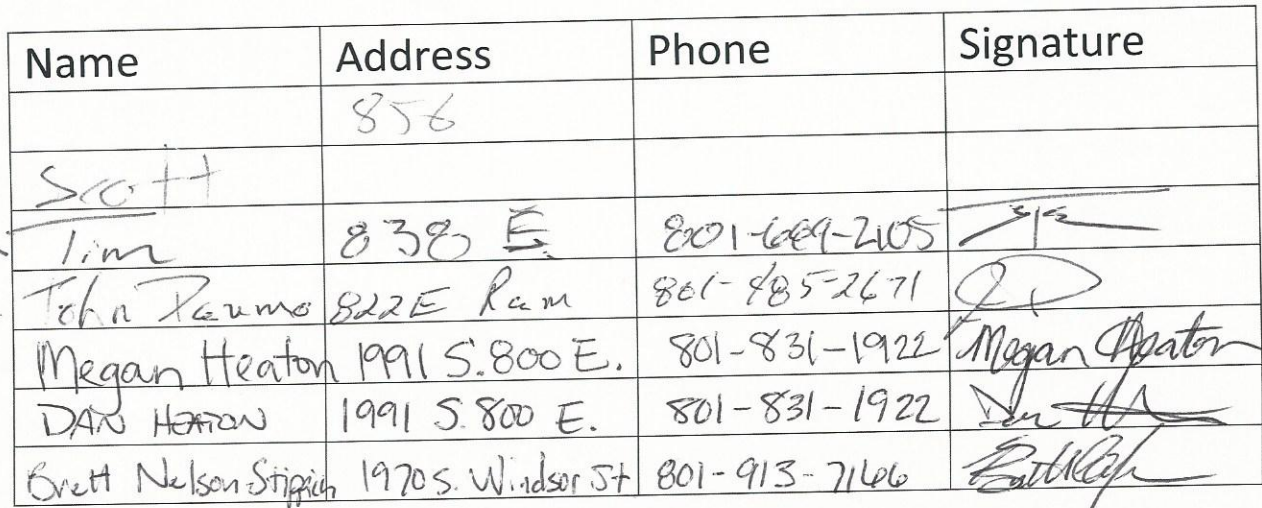 Name Address Phone Signature
856
Scott
Tim 838 E.
John 822 E Ram 801-485-2671
Megan Heaton 1991 S. 800 E. 801-831-1922 Megan Heaton
DAN HEATON 1991 S. 800 E. 801-831-1922 Dan
Brett Nelson 1970 S. Windsor St 801-913-7166